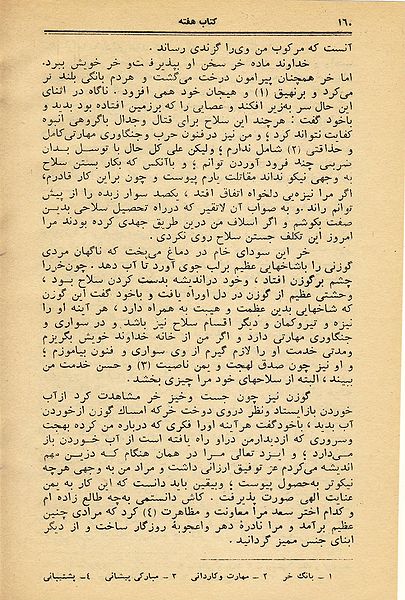 ۱۶۰ کتاب هفته
آنست که مرکوب من وی‌را گزندی رساند .
خداوند ماده خر سخن او بپذیرفت‌و خر خویش ببرد.
اما خر همچنان پیرامون درخت می‌گشت و هردم بانگی بلند تر
می‌کرد و برنهیق (۱) و هیجان خود همی افزود . ناگاه در اثنای
این حال سر به‌زیر افکند و عصایی را که برزمین افتاده بود بدید و
باخود گفت : هرچند این سلاح برای قتال وجدال باگروهی انبوه
کفایت نتواند کرد ؛ و من نیز درفنون حرب وجنگاوری مهارتی‌کامل
و حذاقتی (۲) شامل ندارم ؛ ولیکن علی کل حال با توسل بدان
ضربتی چند فرود آوردن توانم ؛ و باآنکس که بکار بستن سلاح
به وجهی نیکو نداند مقاتلت یارم پیوست و چون براین کار قادرم،
اگر مرا نیزه‌یی دلخواه اتفاق افتد ، یکصد سوار زبده را از پیش
توانم راند .و به صواب آن لایقتر که درراه تحصیل سلاحی بدین
صفت بکوشم و اگر اسلاف من درین طریق جهدی کرده بودند مرا
امروز این تکلف جستن سلاح روی نکردی .
خر این سودای خام در دماغ می‌پخت که ناگهان مردی
گوزنی را باشاخهایی عظیم برلب جوی آورد تا آب دهد . چون‌خررا
چشم برگوزن افتاد ، وخود دراندیشه بدست کردن سلاح بود ،
وحشتی عظیم از گوزن در دل اوراه یافت و باخود گفت این گوزن
که شاخهایی بدین عظمت و هیبت به همراه دارد ، هر آینه او را
نیزه و تیروکمان و دیگر اقسام سلاح نیز باشد و در سواری و
جنگاوری مهارتی دارد و اگر من از خانه خداوند خویش بگریزم
ومدتی خدمت او را لازم گیرم از وی سواری و فنون بیاموزم ؛
و او نیز چون صدق لهجت و یمن ناصیت (۳) و حسن خدمت من
ببیند ، البته از سلاحهای خود مرا چیزی بخشد .
گوزن نیز چون جست وخیز خر مشاهدت کرد ازآب
خوردن بازایستاد ونظر درروی دوخت خر که امساک گوزن ازخوردن
آب بدید ، باخودگفت هرآینه اورا فکری که درباره من کرده بهجت
وسروری که ازدیدارمن دراو راه یافته است از آب خوردن باز
می‌دارد ؛ و ایزد تعالی مرا در همان هنگام که دزین مهم
اندیشه می‌کردم عز توفیق ارزانی داشت و مراد من به وجهی هرچه
نیکوتر به‌حصول پیوست ؛ وبیقین باید دانست که این کار به یمن
عنایت الهی صورت پذیرفت . کاش دانستمی به‌چه طالع زاده ام
و کدام اختر سعد مرا معاونت و مظاهرت (۴) کرد که مرادی چنین
عظیم برآمد و مرا نادرهٔ دهر واعجوبهٔ روزگار ساخت و از دیگر
ابنای جنس ممیز گردانید .
۱ ــ بانگ خر ۲ ــ مهارت وکاردانی ۳ ــ مبارکی پیشانی ۴ــ پشتیبانی